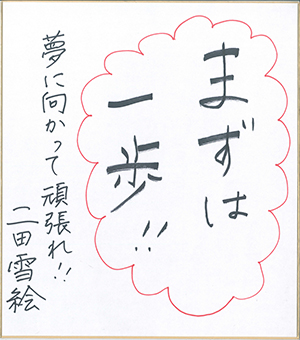 まずは
一歩!!
夢に向かって頑張れ!!
二田雪絵